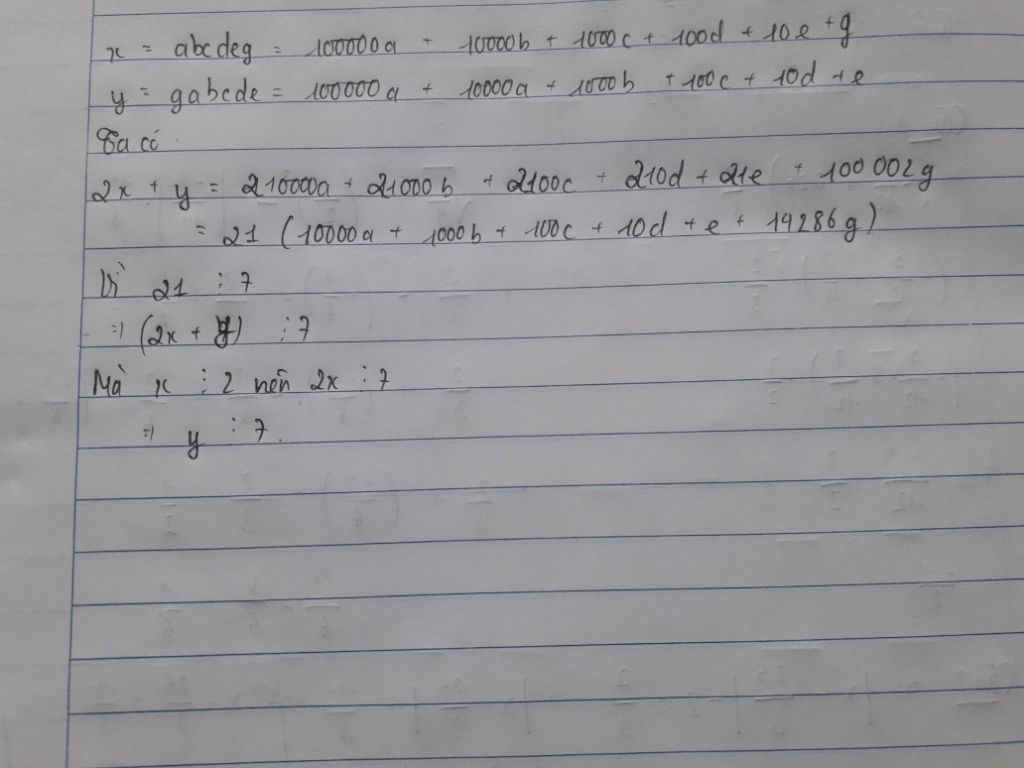 x = abcdeg = 100000a + 10000b + 1000c + 100d + 10e + g
y = gabcde = 100000a + 10000a + 1000b + 100c + 10d + e
Ta có
2x + y = 210000a + 21000b + 2100c + 210d + 21e + 100 002g
= 21 (10000a + 1000b + 100c + 10d + e + 14286g)
Vì 21 ⋮ 7
=> (2x + y) ⋮ 7
Mà x ⋮ 2 nên 2x ⋮ 7
=> y ⋮ 7.